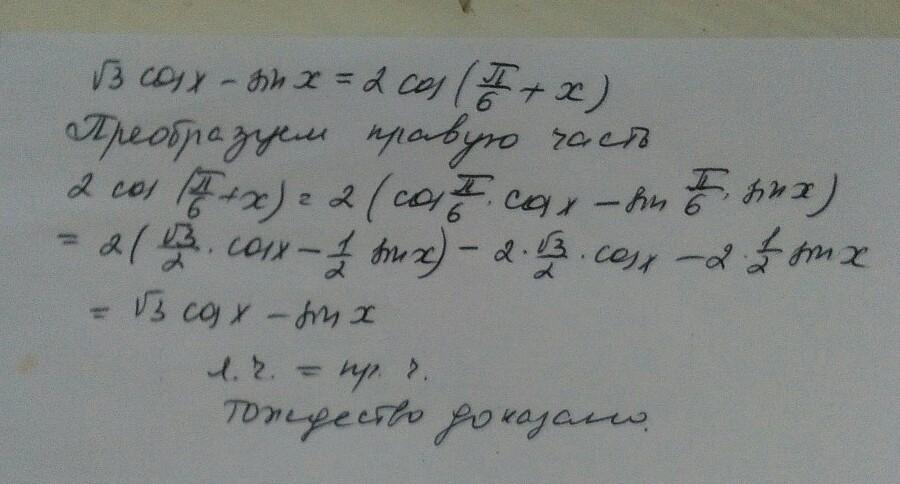 √3 cos x - sin x = 2 cos (π/6 + x)
Преобразуем правую часть
2 cos (π/6 + x) = 2 (cos π/6 · cos x - sin π/6 · sin x)
= 2 (√3/2 · cos x - 1/2 sin x) - 2 · √3/2 · cos x - 2 · 1/2 sin x
= √3 cos x - sin x
л. ч. = пр. ч.
Тождество доказано.